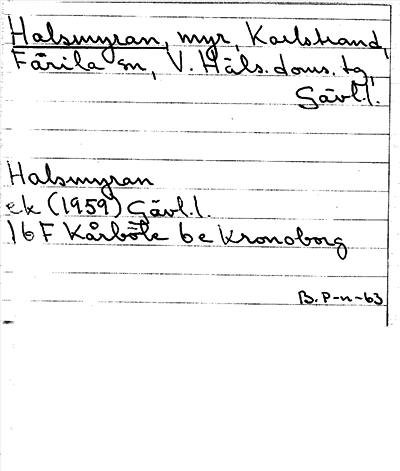 Halsmyran, myr, Karlstrand,
Färila sn, V. Häls. doms. tg,
Gävl.l.
Halsmyran
ek (1959) Gävl.l.
16F Kårböle 6e Kronoborg
B. P-n-63